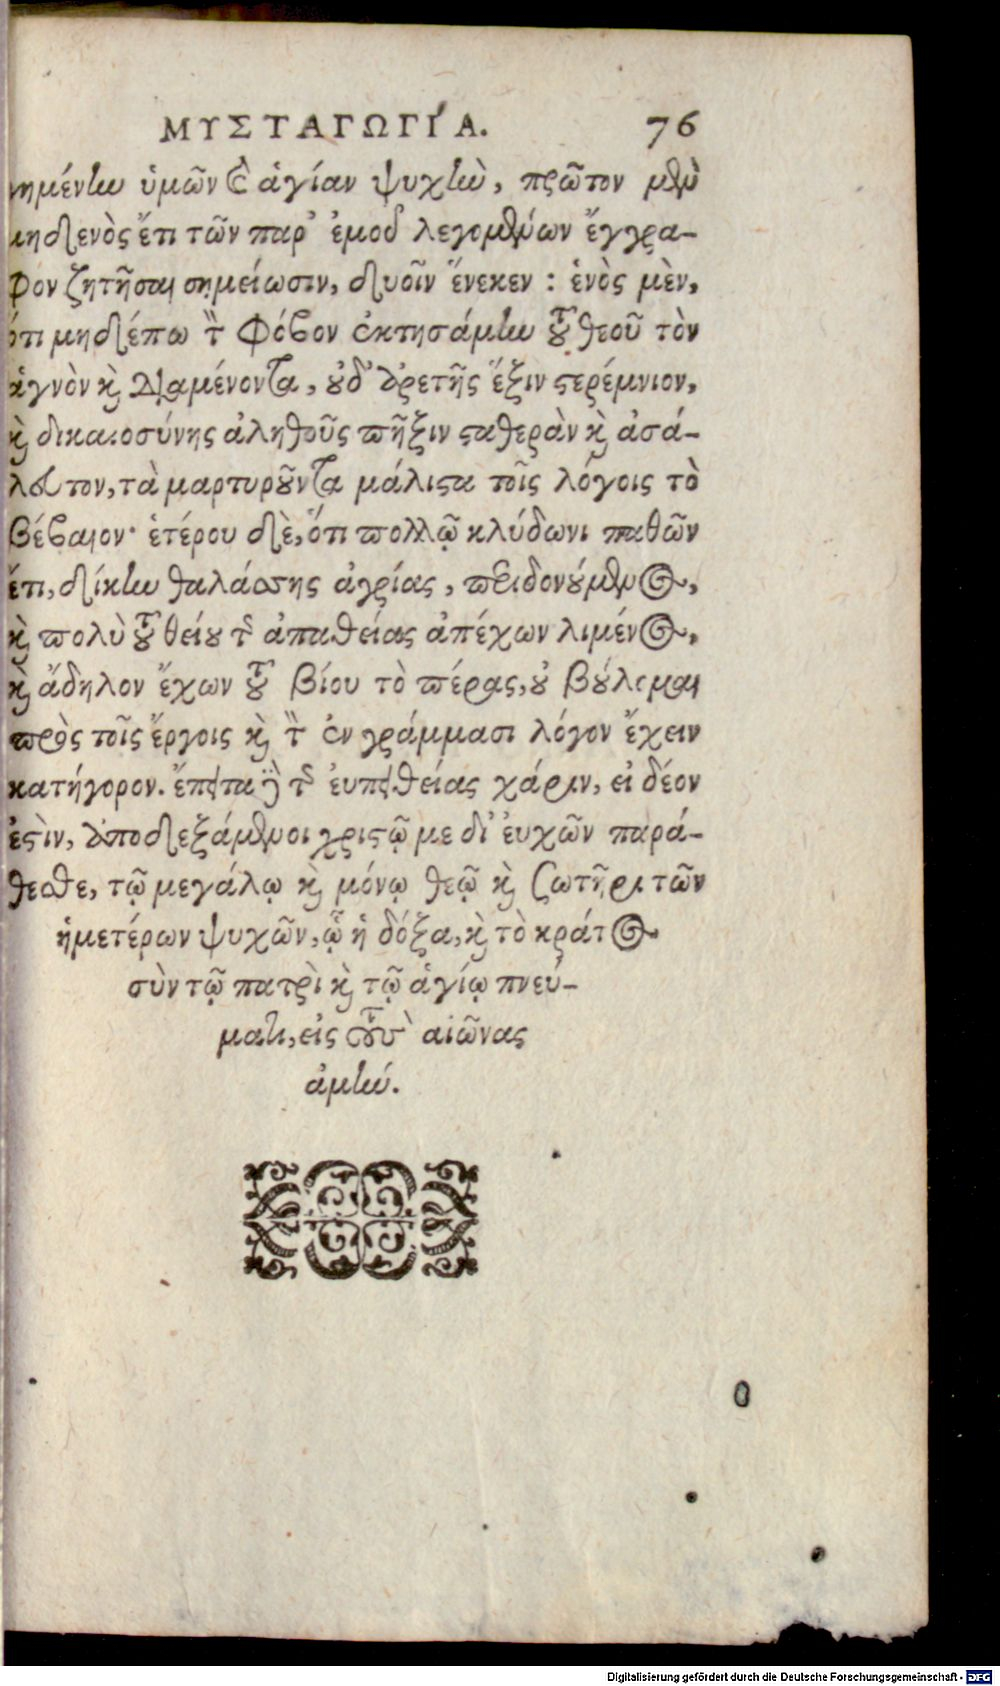 ΜΥΣΤΑΓΩΓΙΑ. 76
νημένην ὑμῶν καὶ ἁγίαν ψυχὴν, πρῶτον μὲν
μηδενὸς ἔτι τῶν παρ' ἐμοῦ λεγομένων ἔγγρα-
φον ζητῆσαι σημείωσιν, δυοῖν ἕνεκεν : ἑνὸς μὲν,
ὅτι μηδέπω τὸν φόβον ἐκτησάμην τοῦ θεοῦ τὸν
ἁγνὸν καὶ διαμένοντα, οὐδ' ἀρετῆς ἕξιν στερέμνιον,
καὶ δικαιοσύνης ἀληθοῦς πῆξιν σταθερὰν καὶ ἀσά-
λευτον, τὰ μαρτυροῦντα μάλιστα τοῖς λόγοις τὸ
βέβαιον· ἑτέρου δὲ, ὅτι πολλῷ κλύδωνι παθῶν
ἔτι, δίκην θαλάσσης ἀγρίας, περιδονούμενος,
καὶ πολὺ τοῦ θείου τῆς ἀπαθείας ἀπέχων λιμένος,
καὶ ἄδηλον ἔχων τοῦ βίου τὸ πέρας, οὐ βούλομαι
πρὸς τοῖς ἔργοις καὶ τὸν ἐν γράμμασι λόγον ἔχειν
κατήγορον. ἔπειτα καὶ τῆς εὐπειθείας χάριν, εἰ δέον
ἐστὶν, ἀποδεξάμενοι χριστῷ με δι' εὐχῶν παρά-
θεσθε, τῷ μεγάλῳ καὶ μόνῳ θεῷ καὶ σωτῆρι τῶν
ἡμετέρων ψυχῶν, ᾧ ἡ δόξα, καὶ τὸ κράτος
σὺν τῷ πατρὶ καὶ τῷ ἁγίῳ πνεύ-
ματι, εἰς τοὺς αἰῶνας
ἀμήν.
Digitalisierung gefördert durch die Deutsche Forschungsgemeinschaft - DFG